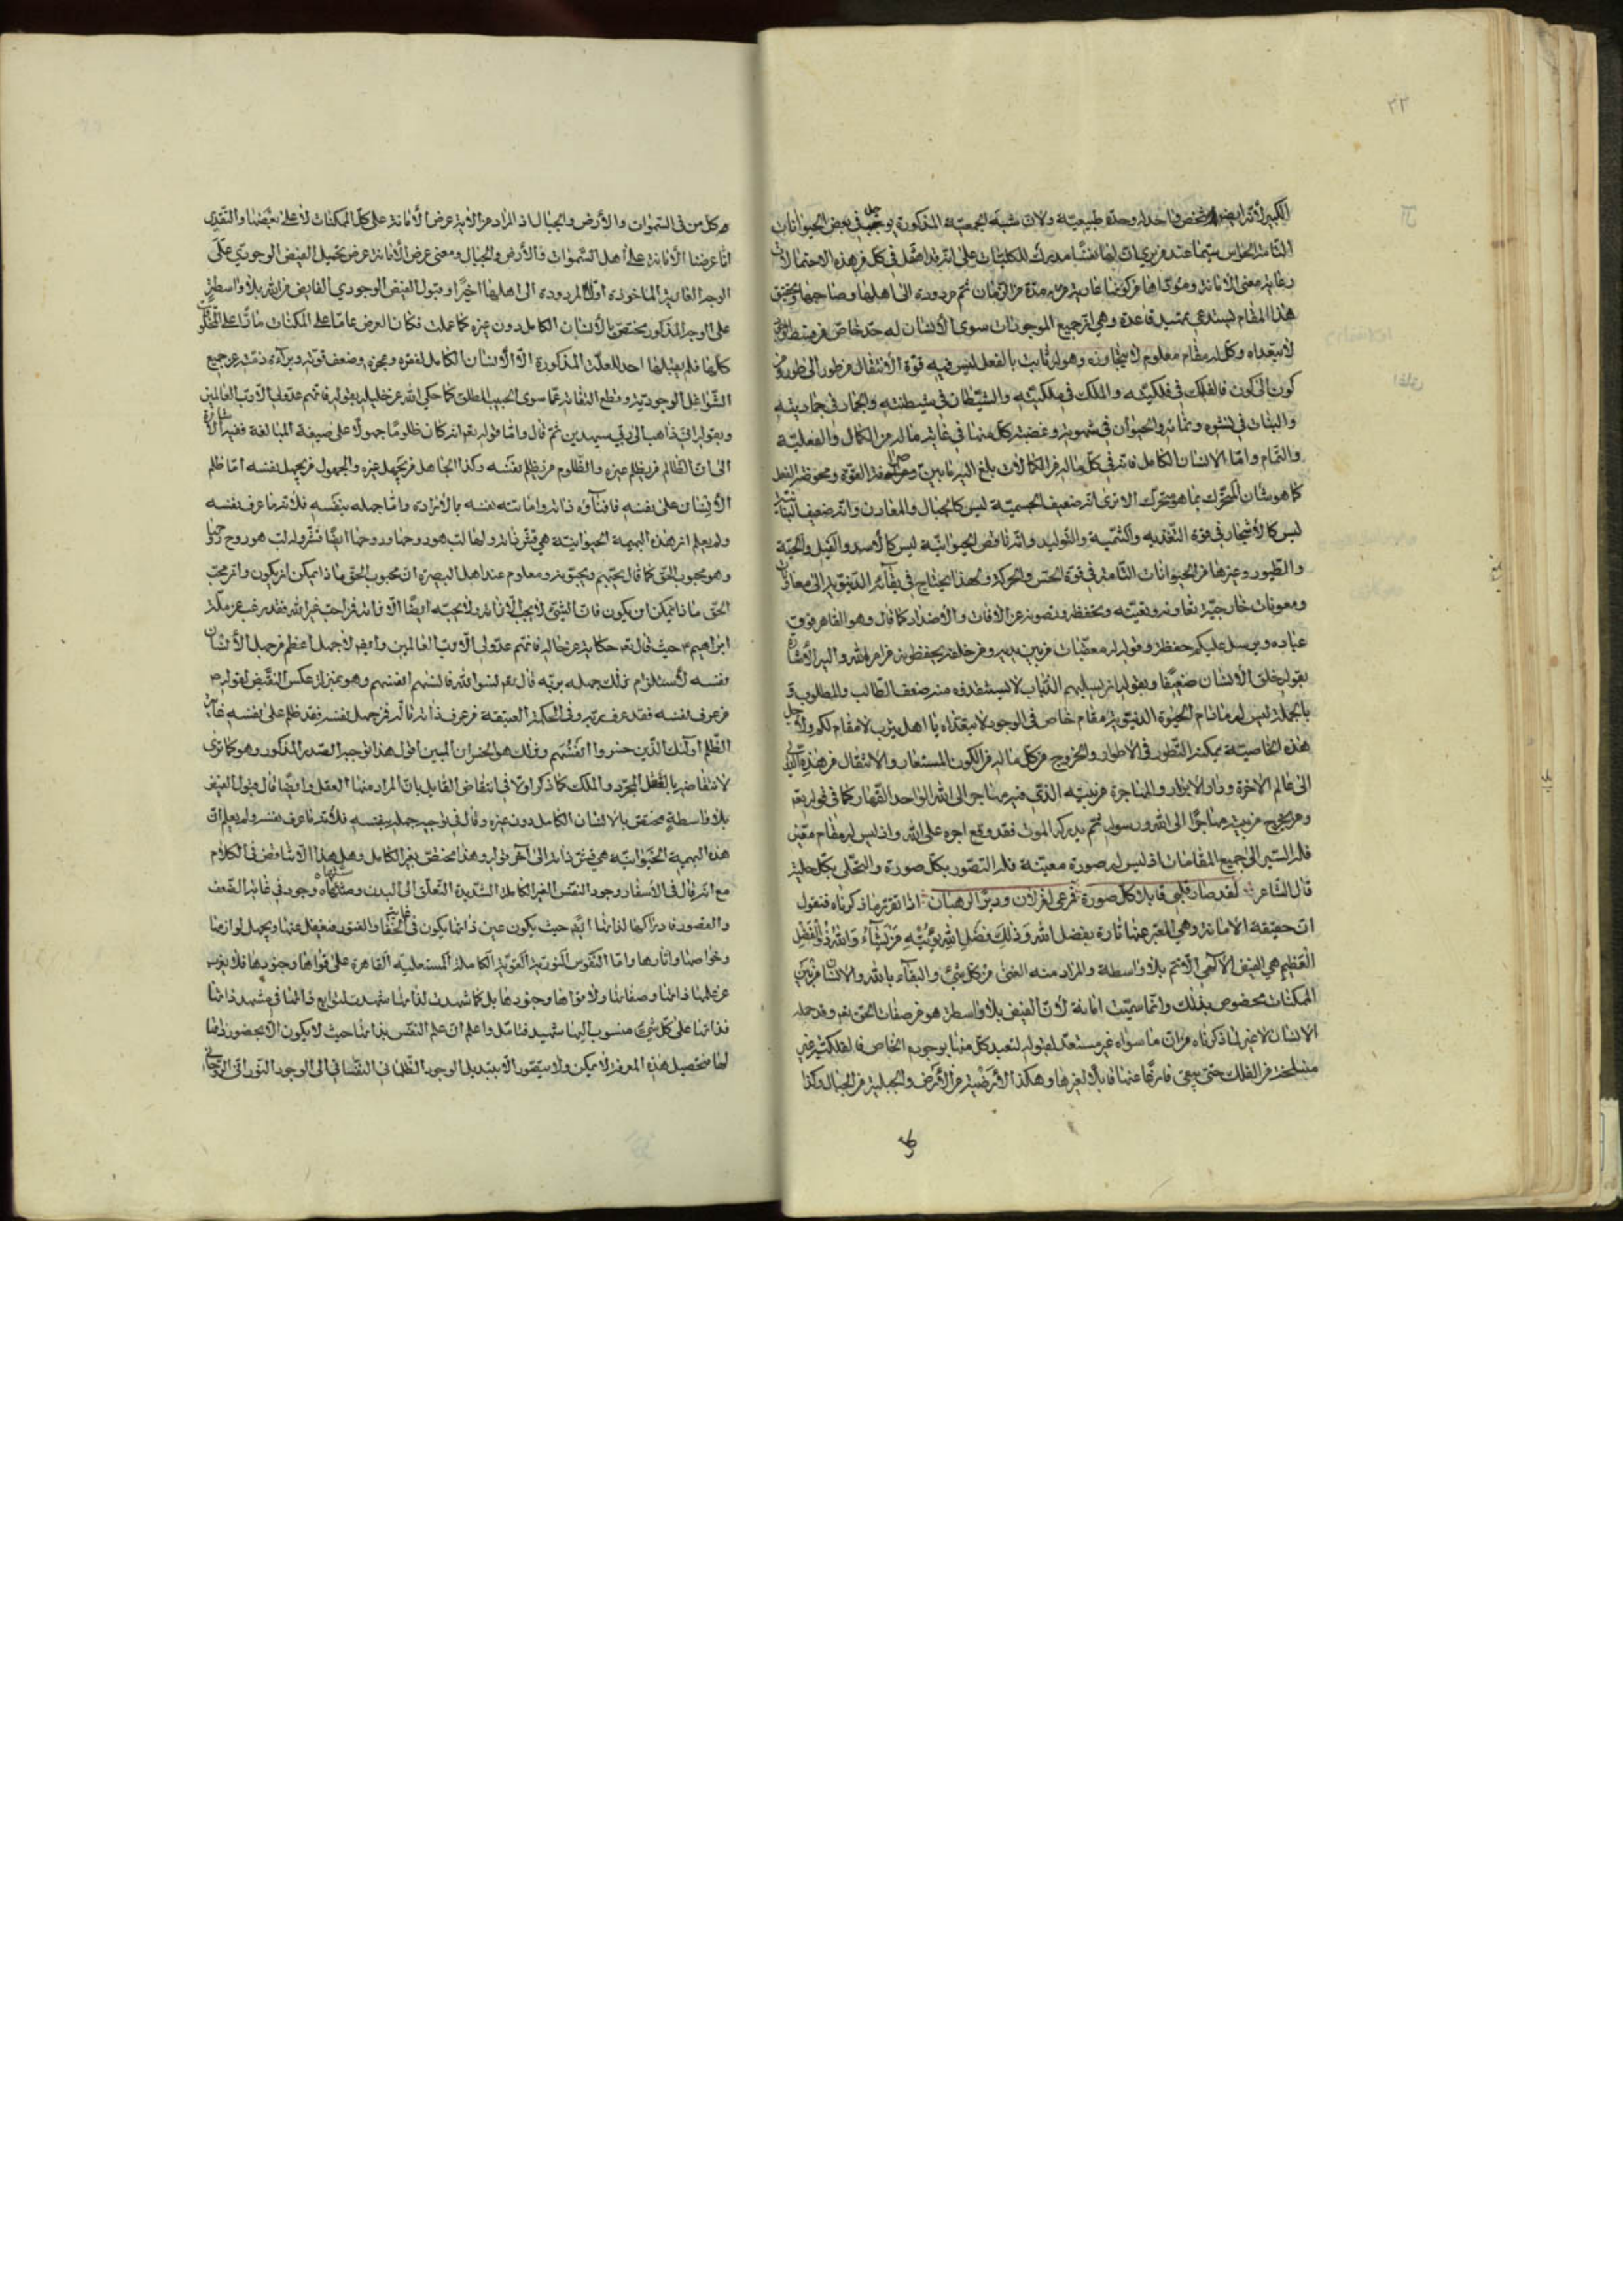 ٢٢
الكبير لأنه ايضا شخص واحد له وحدة طبيعية ولان شبه الجمعية المذكورة يوجد في بعض الحيوانات
التامة الحواس سيما عند من يرى ان لها نفسا مدركة للكليات على انه قد اهمل في كل من هذه الاحتمالات
رعاية معنى الأمانة ومؤداها من كونها عارية مدة من الزمان ثم مردودة الى اهلها وصاحبها وتحقيق
هذا المقام يستدعي تمهيد قاعدة وهي ان جميع الموجودات سوى الأنسان له حد خاص من
لا يتعداه وكل له مقام معلوم لا يتجاوزه وهو له ثابت بالفعل ليس فيه قوة الأنتقال من طور الى طور ومن
كون الى كون فالفلك في فلكيته والملك في ملكيته والشيطان في شيطنته والجماد في جماديته
والنبات في نشوه ونمائه والحيوان في شهويته وغضبته كل منها في غاية ماله من الكمال والفعلية
والتمام واما الانسان الكامل فانه في كل ماله من الكمالات بلغ اليه ما بين صرافة القوة ومحوضة الفعل
كما هو شان المتحرك بما هو متحرك الا ترى انه ضعيف الجسمية ليس كالجبال والمعادن وانه ضعيف النباتية
ليس كالأشجار في قوة التغذية والتنمية والتوليد وانه ناقص الحيوانية ليس كالأسد والفيل والحية
والطيور وغيرها من الحيوانات التامة في قوة الحس والحركة ولهذا يحتاج في بقائه الدنيوية الى معاونات
ومعونات خارجية تعاونه وتعينه وتحفظه وتصونه عن الافات والأضداد كما قال وهو القاهر فوق
عباده ويرسل عليكم حفظة وقوله له معقبات من بين يديه ومن خلفه يحفظونه من امر الله واليه الأشارة
بقوله خلق الأنسان ضعيفا وبقوله ان يسلبهم الذباب لا يستنقذوه منه ضعف الطالب والمطلوب و
بالجملة ليس له ما دام الحيوة الدنيوية مقام خاص في الوجود لا يتعداه يا اهل يثرب لا مقام لكم ولأجل
هذه الخاصية يمكنه التطور في الاطوار والخروج من كل ماله من الكون المستعار والانتقال من هذه
الى عالم الاخرة ودار الابرار والمهاجرة من بيته الذي فيه مهاجرا الى الله الواحد القهار كما في قوله تعه
ومن يخرج من بيته مهاجرا الى الله ورسوله ثم يدركه الموت فقد وقع اجره على الله واذ ليس له مقام معين
فله السير الى جميع المقامات اذ ليس له صورة معينة فله التصور بكل صورة والتحلي بكل حلية
قال الشاعر لقد صار قلبي قابلا كل صورة فمرعى لغزلان ودير الرهبان اذا تقرر ما ذكرناه فنقول
ان حقيقة الامانة وهي المعبر عنها تارة بفضل الله وذلك فضل الله يؤتيه من يشآء والله ذو الفضل
العظيم هي الفيض الالهي الاتم بلا واسطة والمراد منه الفنى من كل شئ والبقآء بالله والانسان من بين
الممكنات مخصوص بذلك وانما سميت امانة لأن الفيض بلا واسطة هو من صفات الحق تعه وقد حمله
الانسان لا غير لما ذكرناه من ان ما سواه غير مستعد لقبوله لتعيد كل منها بوجوده الخاص فالفلكية غير
منسلخة من الفلك حتى يبقى فارغا عنها قابلا لغيرها وهكذا الأرضية من الأرض والجبلية من الجبال وكذا
كل من في السموات والأرض والجبال اذ المراد من الأية عرض الأمانة على كل الممكنات لا على بعضها والتقدير
انا عرضنا الأمانة على أهل السموات والأرض والجبال ومعنى عرض الأمانة عرض تحمل الفيض الوجودي على
الوجه العارية الماخوذة أولا المردودة الى اهلها اخيرا وقبول الفيض الوجودي الفايض من الله بلا واسطة
على الوجه المذكور يختص بالأنسان الكامل دون غيره كما علمت فكان العرض عاما على الممكنات
كلها فلم يقبلها احد للعلة المذكورة الا الأنسان الكامل لفقره وعجزه وضعف قوته وبرآءة ذمته عن جميع
الشواغل الوجودية وقطع التفاته عما سوى الحبيب المطلق كما حكى الله عن خليله بقوله فانهم عدو لي الا رب العالمين
وبقوله اني ذاهب الى ربي سيهدين ثم قال واما قوله تعه انه كان ظلوما جهولا على صيغة المبالغة ففيه اشارة
الى ان الظالم من يظلم غيره والظلوم من يظلم نفسه وكذا الجاهل من يجهل غيره والجهول من يجهل نفسه اما ظلم
الأنسان على نفسه فافنآؤه ذاته واماتته نفسه بالأرادة واما جهله بنفسه فلأنه ما عرف نفسه
ولم يعلم ان هذه البهيمة الحيوانية هي قشر ذاته ولها لب هو روحها وروحها ايضا قشر وله لب هو روح
وهو محبوب الحق كما قال يحبهم ويحبونه ومعلوم عند اهل البصيرة ان محبوب الحق ماذا يمكن ان يكون وان محب
الحق ماذا يمكن ان يكون فان الشئ لا يحب الا ذاته ولا يحبه ايضا الا ذاته فمن احب غير الله فقد رغب عن ملة
ابراهيم حيث قال تعه حكاية عن حاله فانهم عدو لي الا رب العالمين وايضا لا جهل اعظم من جهل الأنسان
بنفسه لأستلزام ذلك جهله بربه قال تعه نسوا الله فانساهم انفسهم وهو بمنزلة عكس النقيض لقوله
من عرف نفسه فقد عرف ربه وفي الحكمة العتيقة من عرف ذاته تاله فمن جهل نفسه فقد ظلم على نفسه غاية
الظلم اولئك الذين خسروا انفسهم وذلك هو الخسران المبين اقول هذا توجيه الصدر المذكور وهو كما ترى
لانتقاضه بالعقل المجرد والملك كما ذكر اولا في انتقاض القايل بان المراد منها العقل وايضا قال قبول الفيض
بلا واسطة مختص بالانسان الكامل دون غيره وقال في توجيه جهله بنفسه فلأنه ما عرف نفسه ولم يعلم ان
هذه البهيمة الحيوانية هي قشر ذاته الى آخر قوله وهذا متحقق بغير الكامل وهل هذا الا تناقض في الكلام
مع انه قال في الأسفار وجود النفس الغير الكاملة الشديدة التعلق الى البدن وجود في غاية الضعف
والقصور فادراكها لذاتها ايضا حيث يكون عين ذاتها يكون في غاية الخفآء والفتور فتغفل عنها ويجهل لوازمها
وخواصها واثارها واما النفوس النورية القوية الكاملة المستعلية القاهرة على قواها وجنودها فلا يغيب
عن علمها ذاتها وصفاتها ولا قواها وجنودها بل كما شهدت لذاتها شهدت لتوابع ذاتها في مشهد ذاتها
فذاتها على كل شئ منسوب اليها شهيد فتامل واعلم ان علم النفس بذاتها حيث لا يكون الا بحضور ذاتها
لها فتحصيل هذه المعرفة لا يمكن ولا يتصور الا بتبديل الوجود الظلماني النفساني الى الوجود النوراني الروحاني